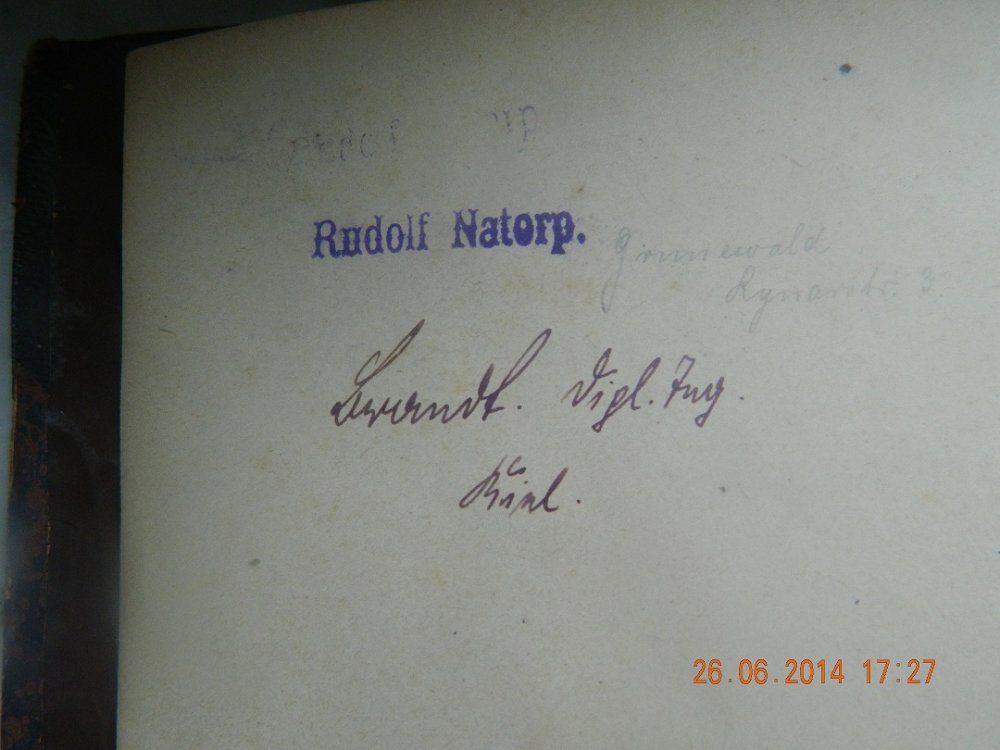 Rudolf Natorp.
Grunewald
Lynarstr. 3.
Brandt. Dipl. Ing.
Kiel.
26.06.2014 17:27